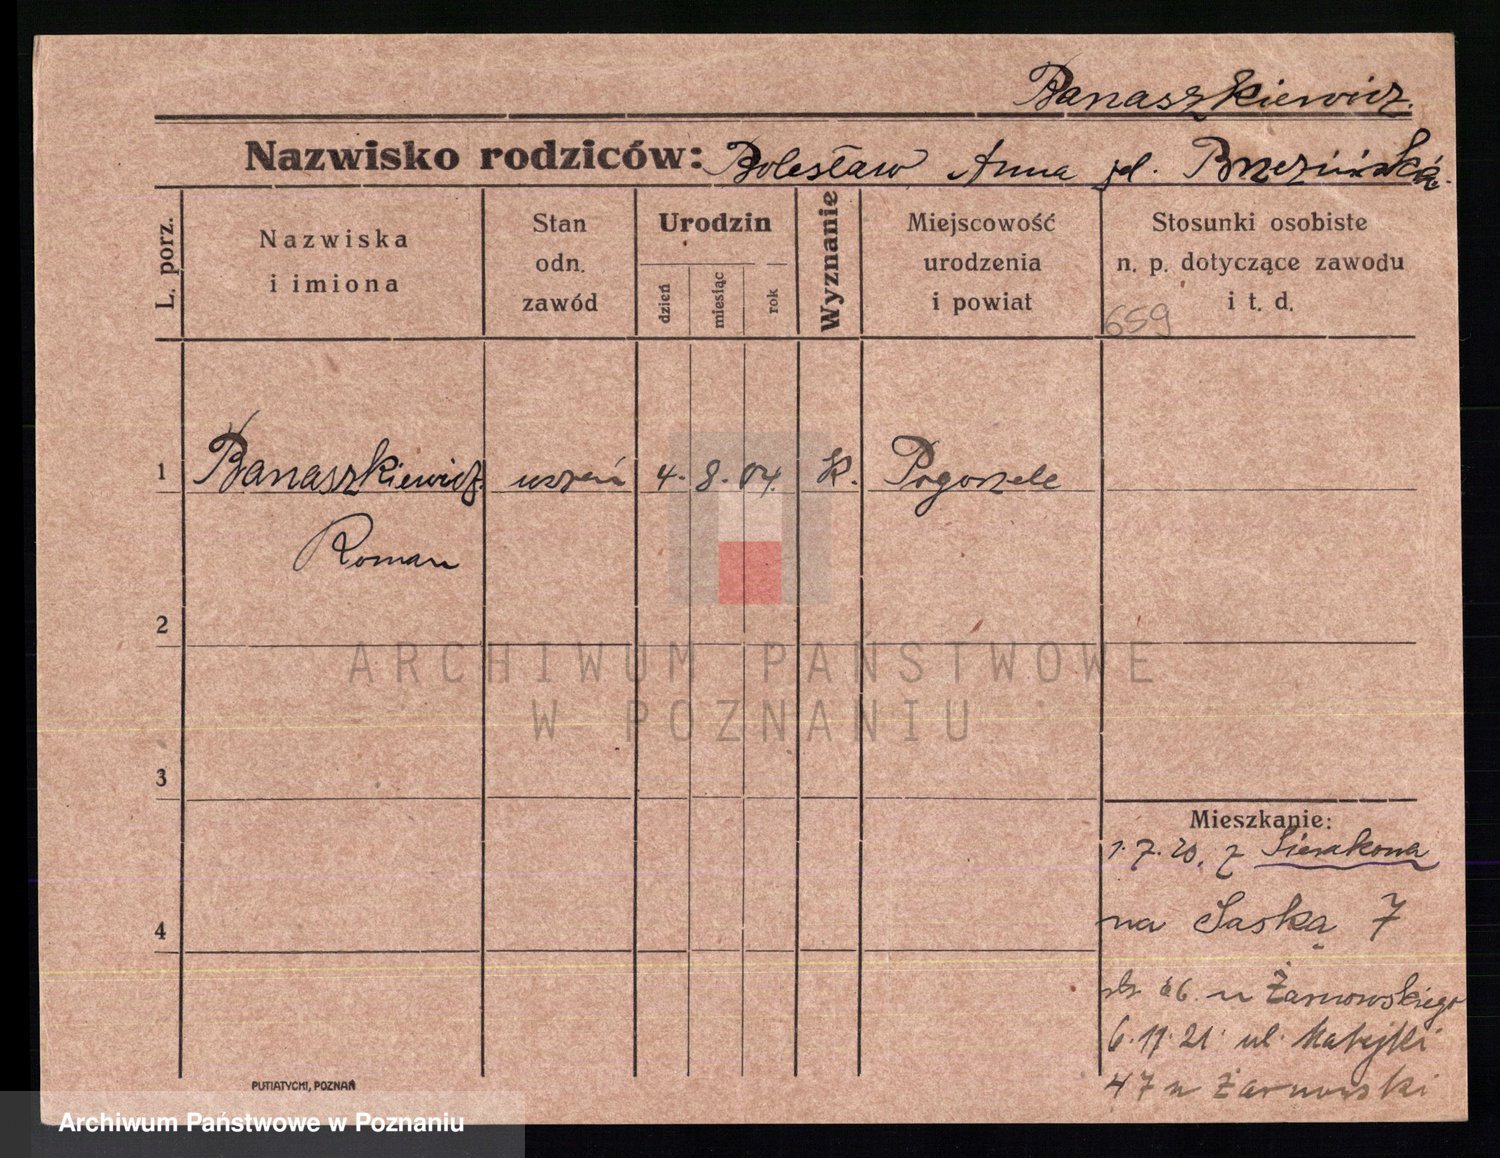 Banaszkiewicz.
Nazwisko rodziców: Bolesław Anna Brzezińska.
L. porz.
Nazwiska
i imiona
Stan
odn.
zawód
Urodzin
dzień
miesiąc
rok
Wyznanie
Miejscowość
urodzenia
i powiat
Stosunki osobiste
n. p. dotyczące zawodu
i t. d.
659
1 Banaszkiewicz uczeń 4. 8. 04. K. Pogorzele
Roman
2
3
4
Mieszkanie:
1.7.20. z Sierakowa
na Saską 7
u Żarnowskiego
6.11.21. ul. Matejki
47 u Żarnowski
PUTIATYCKI, POZNAŃ
ARCHIWUM PAŃSTWOWE
W POZNANIU
Archiwum Państwowe w Poznaniu